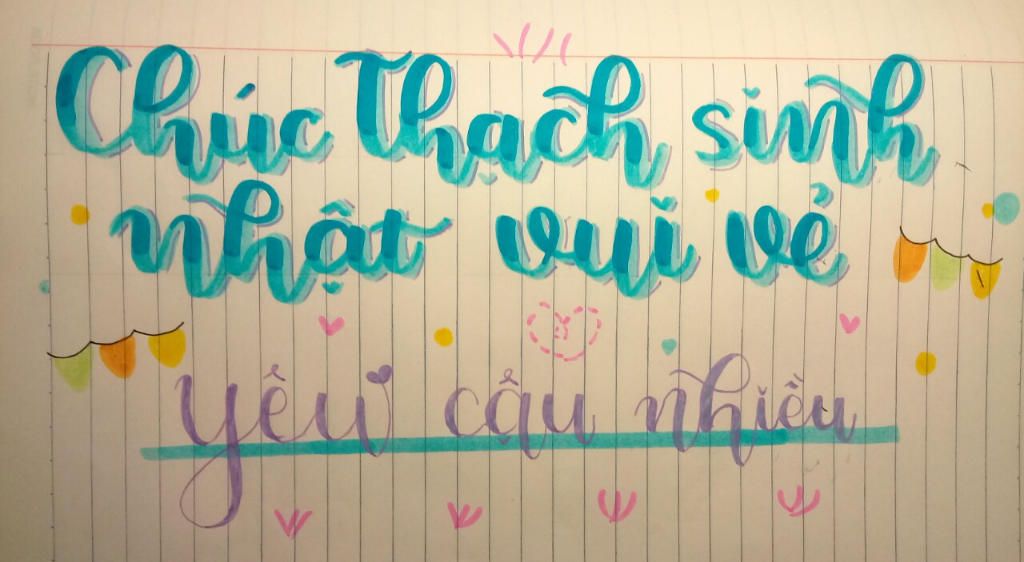 Chúc Thạch sinh
nhật vui vẻ
yêu cậu nhiều